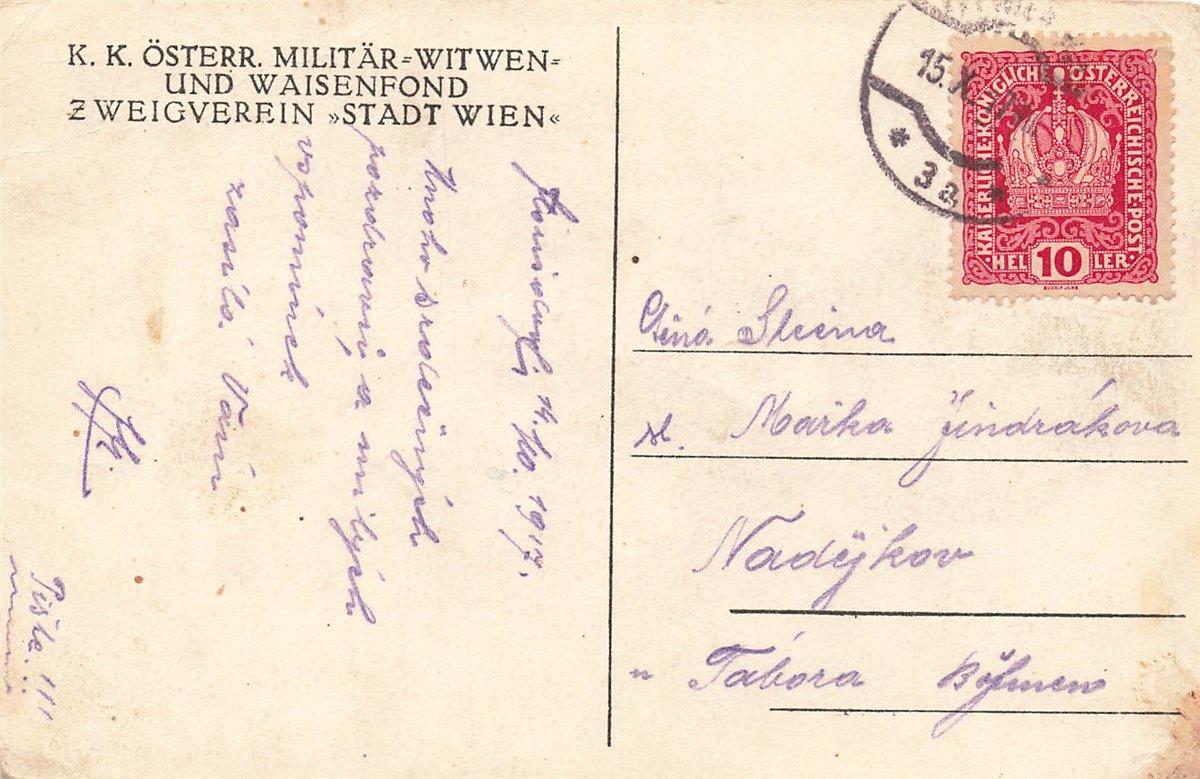 K. K. ÖSTERR. MILITÄR=WITWEN=
UND WAISENFOND
ZWEIGVEREIN »STADT WIEN«
14.10.1917.
Mnoho srdečných
pozdravů a milých
vzpomínek
zasílá Vám
Pište!!!
15.X.
* 3a *
KAISERLICHE·KÖNIGLICHE·ÖSTERREICHISCHE·POST·
HEL 10 LER
Ctěná Slečna
sl. Mařka Jindrákova
Nadějkov
u Tábora Böhmen